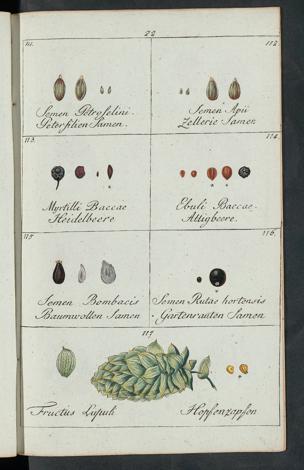 22
111.
112.
Semen Petroselini.
Petersilien Samen.
Semen Apii
Zellerie Samen
113.
114.
Myrtilli Baccae
Heidelbeere
Ebuli Baccae.
Attigbeere.
115
116.
Semen Bombacis
Baumwollen Samen
Semen Rutae hortensis
Gartenrauten Samen
117
Fructus Lupuli
Hopfenzapfen